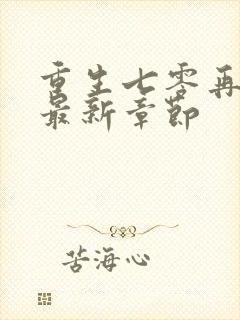 重生七零再
最新章节
苦海心